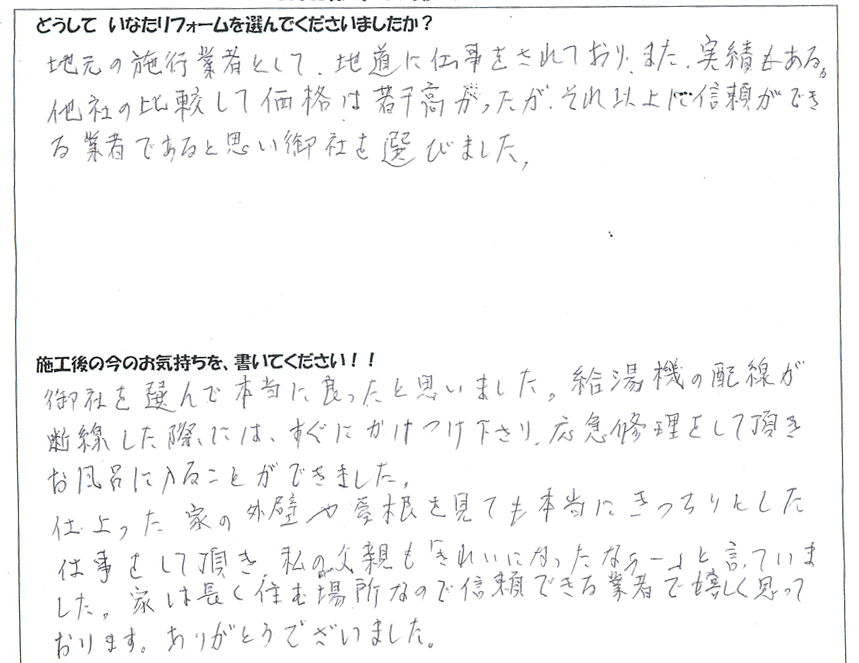 どうして いなたリフォームを選んでくださいましたか？
地元の施行業者として、地道に仕事をされており、また、実績もある。
他社の比較して価格は若干高かったが、それ以上に信頼ができ
る業者であると思い御社を選びました。
施工後の今のお気持ちを、書いてください！！
御社を選んで本当に良ったと思いました。給湯機の配線が
断線した際には、すぐにかけつけ下さり、応急修理をして頂き
お風呂に入ることができました。
仕上った家の外壁や屋根を見ても本当にきっちりとした
仕事をして頂き、私の父親も「きれいになったなぁー」と言っていま
した。家は長く住む場所なので信頼できる業者で嬉しく思って
おります。ありがとうでざいました。